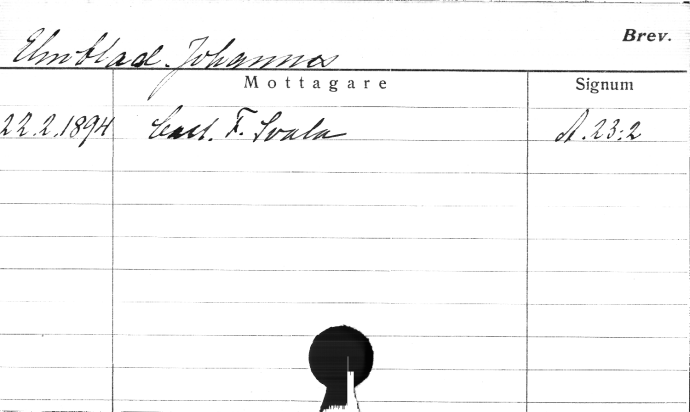 Brev.
Elmblad. Johannes
Mottagare Signum
22.2.1894 Carl. F. Svala A.23:2